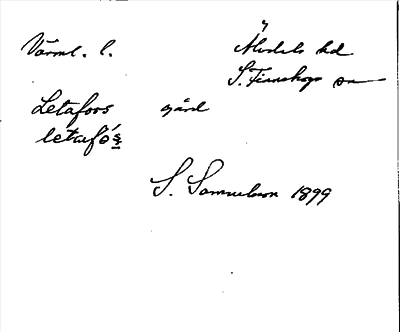 Värml. l. Älvdals hd
S. Finnskoga sn
Letafors gård
letafó̀s̳
S. Samuelsson 1899